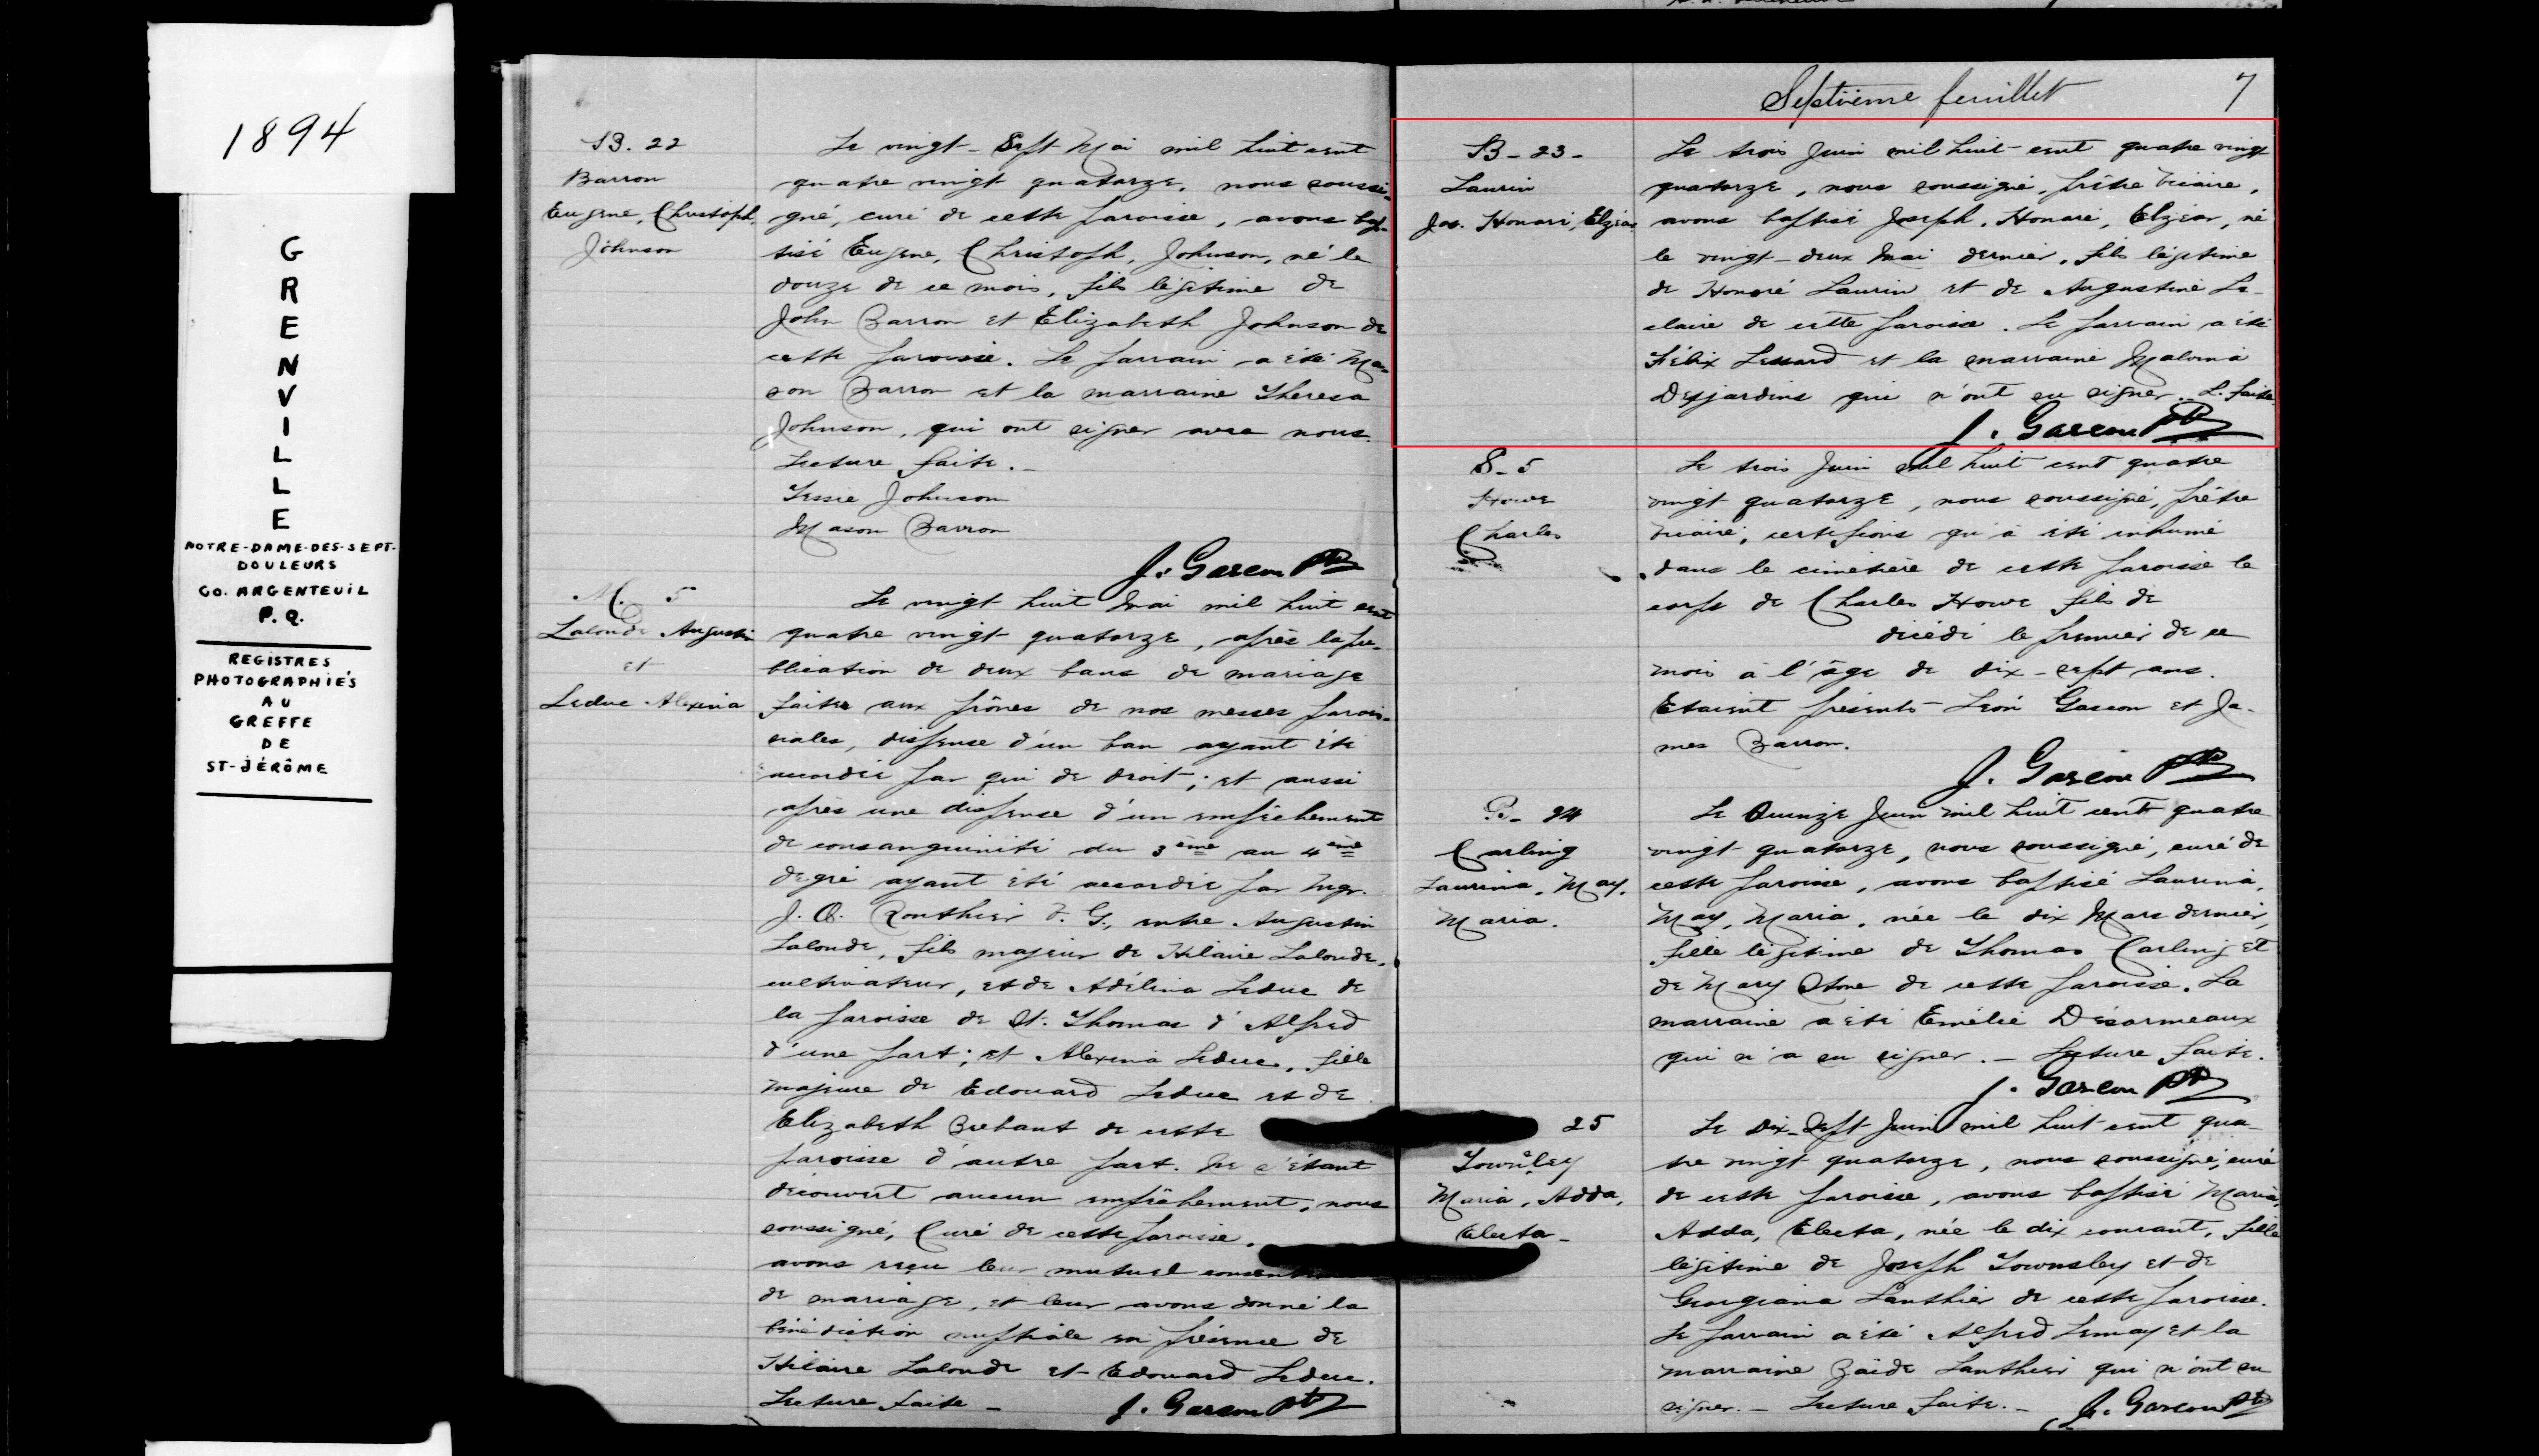 1894
GRENVILLE
NOTRE-DAME-DES-SEPT-
DOULEURS
CO. ARGENTEUIL
P.Q.
REGISTRES
PHOTOGRAPHIÉS
AU
GREFFE
DE
ST-JÉRÔME
B. 22
Barron
Eugene, Christoph.
Johnson
Le vingt-Sept Mai mil huit cent
quatre vingt quatorze, nous soussi-
gné, curé de cette paroisse, avons bap-
tisé Eugene, Christoph, Johnson, né le
douze de ce mois, fils légitime de
John Barron et Elizabeth Johnson de
cette paroisse. Le parrain a été Ma-
son Barron et la marraine Theresa
Johnson, qui ont signer avec nous.
Lecture faite.-
Johnson
Mason Barron
J. Gascon Ptr
M. 5
Lalonde Augustin
et
Leduc Alexina
Le vingt huit Mai mil huit cent
quatre vingt quatorze, après la pu-
blication de deux bans de mariage
faites aux prônes de nos messes parois-
siales, dispense d'un ban ayant été
accordée par qui de droit; et aussi
après une dispense d'un empêchement
de consanguinité du 3ème au 4ème
degré ayant été accordée par Mgr.
J. O. Routhier V. G., entre Augustin
Lalonde, fils majeur de Hilaire Lalonde,
cultivateur, et de Adélina Leduc de
la paroisse de St. Thomas d'Alfred
d'une part; et Alexina Leduc, fille
majeure de Edouard Leduc et de
Elizabeth Brebant de cette
paroisse d'autre part. Ne s'étant
découvert aucun empêchement, nous
soussigné, Curé de cette paroisse,
avons reçu leur mutuel
de mariage, et leur avons donné la
bénédiction nuptiale en présence de
Hilaire Lalonde et Edouard Leduc.
Lecture faite - J. Gascon Ptr
Septième feuillet 7
B-23-
Laurin
Jos. Honoré, Elzéar
Le trois Juin mil huit-cent quatre vingt
quatorze, nous soussigné, prêtre vicaire,
avons baptisé Joseph, Honoré, Elzéar, né
le vingt-deux Mai dernier, fils légitime
de Honoré Laurin et de Augustine Le-
claire de cette paroisse. Le parrain a été
Félix Lessard et la marraine Malvina
Desjardins qui n'ont su signer.. L. faite.
J. Gascon Ptr
S-5
Howe
Charles
Le trois Juin mil huit cent quatre
vingt quatorze, nous soussigné, prêtre
vicaire, certifions qu'a été inhumé
dans le cimetière de cette paroisse le
corps de Charles Howe fils de
décédé le premier de ce
mois à l'âge de dix-sept ans.
Etaient présents- Léon Gascon et Ja-
mes Barron.
J. Gascon Ptr
B- 24
Carling
Laurina, May,
Maria.
Le Quinze Juin mil huit cent quatre
vingt quatorze, nous soussigné, curé de
cette paroisse, avons baptisé Laurina,
May, Maria, née le dix Mars dernier,
fille légitime de Thomas Carling et
de Mary Stone de cette paroisse. La
marraine a été Emélie Désormeaux
qui n'a su signer.- Lecture faite.
J. Gascon Ptr
25
Townsley
Maria, Adda,
Electa-
Le Dix-Sept Juin mil huit-cent qua-
tre vingt quatorze, nous soussigné, curé
de cette paroisse, avons baptisé Maria,
Adda, Electa, née le dix courant, fille
légitime de Joseph Townsley et de
Georgiana Lanthier de cette paroisse.
Le parrain a été Alfred Lemay et la
marraine Zaïde Lanthier qui n'ont su
signer.- Lecture faite.- J. Gascon Ptr